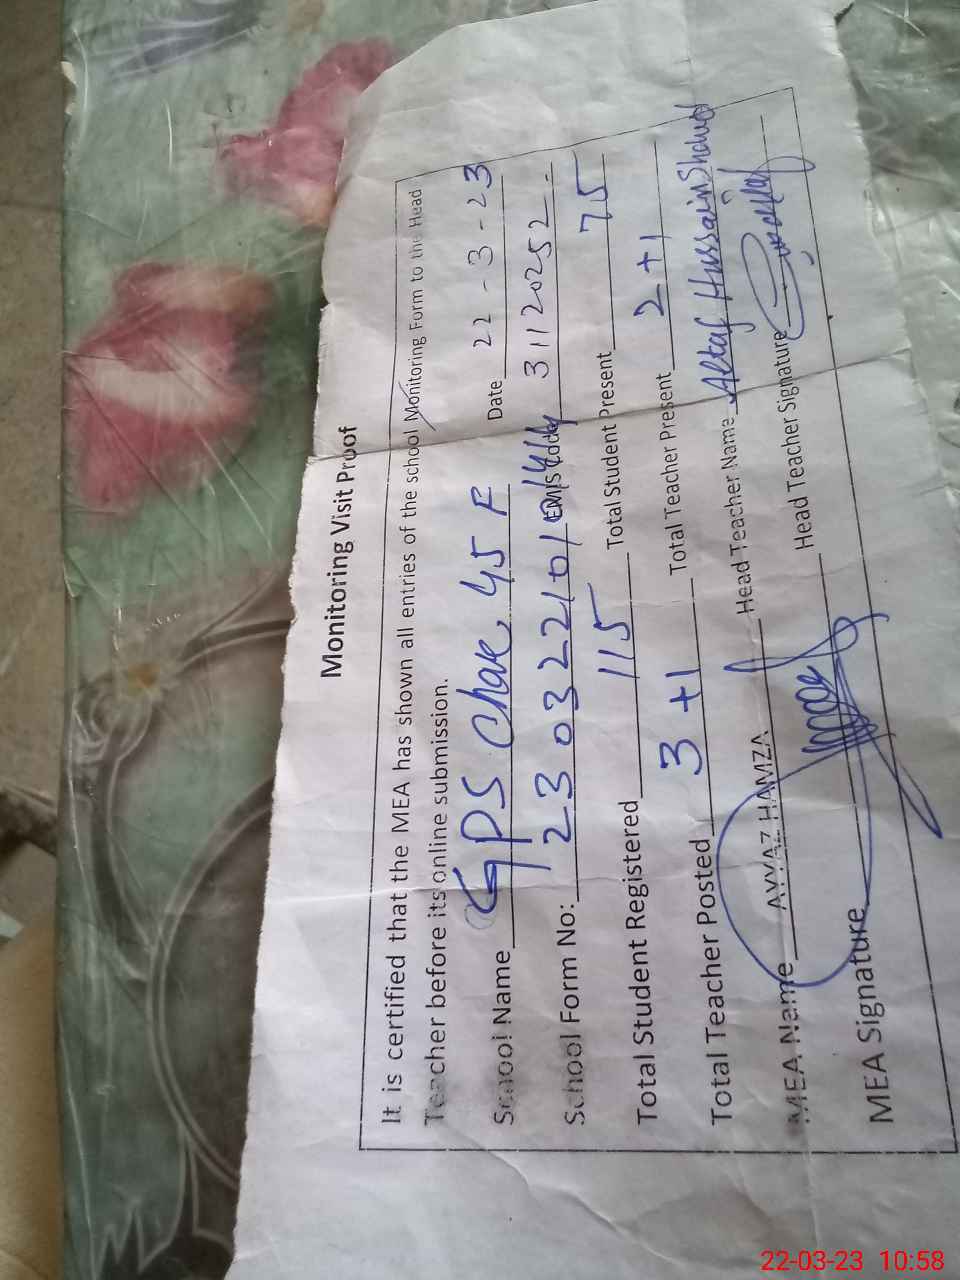 Monitoring Visit Proof
It is certified that the MEA has shown all entries of the school Monitoring Form to the Head
Teacher before its online submission.
School Name GPS Chak 45 F Date 22-3-23
School Form No: 23032210 EMIS Code 31120252
Total Student Registered 115 Total Student Present 75
Total Teacher Posted 3+1 Total Teacher Present 2+1
MEA Name AYYAZ HAMZA Head Teacher Name Altaf Hussain Shahid
MEA Signature Head Teacher Signature
22-03-23 10:58